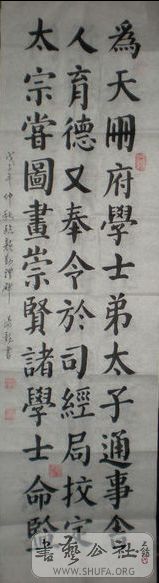 為天冊府學士弟太子通事舍
人育德又奉令於司經局挍定
太宗嘗圖畫崇賢諸學士命監
戊子年仲秋臨顏勤禮碑 書
書藝公社
WWW.SHUFA.ORG